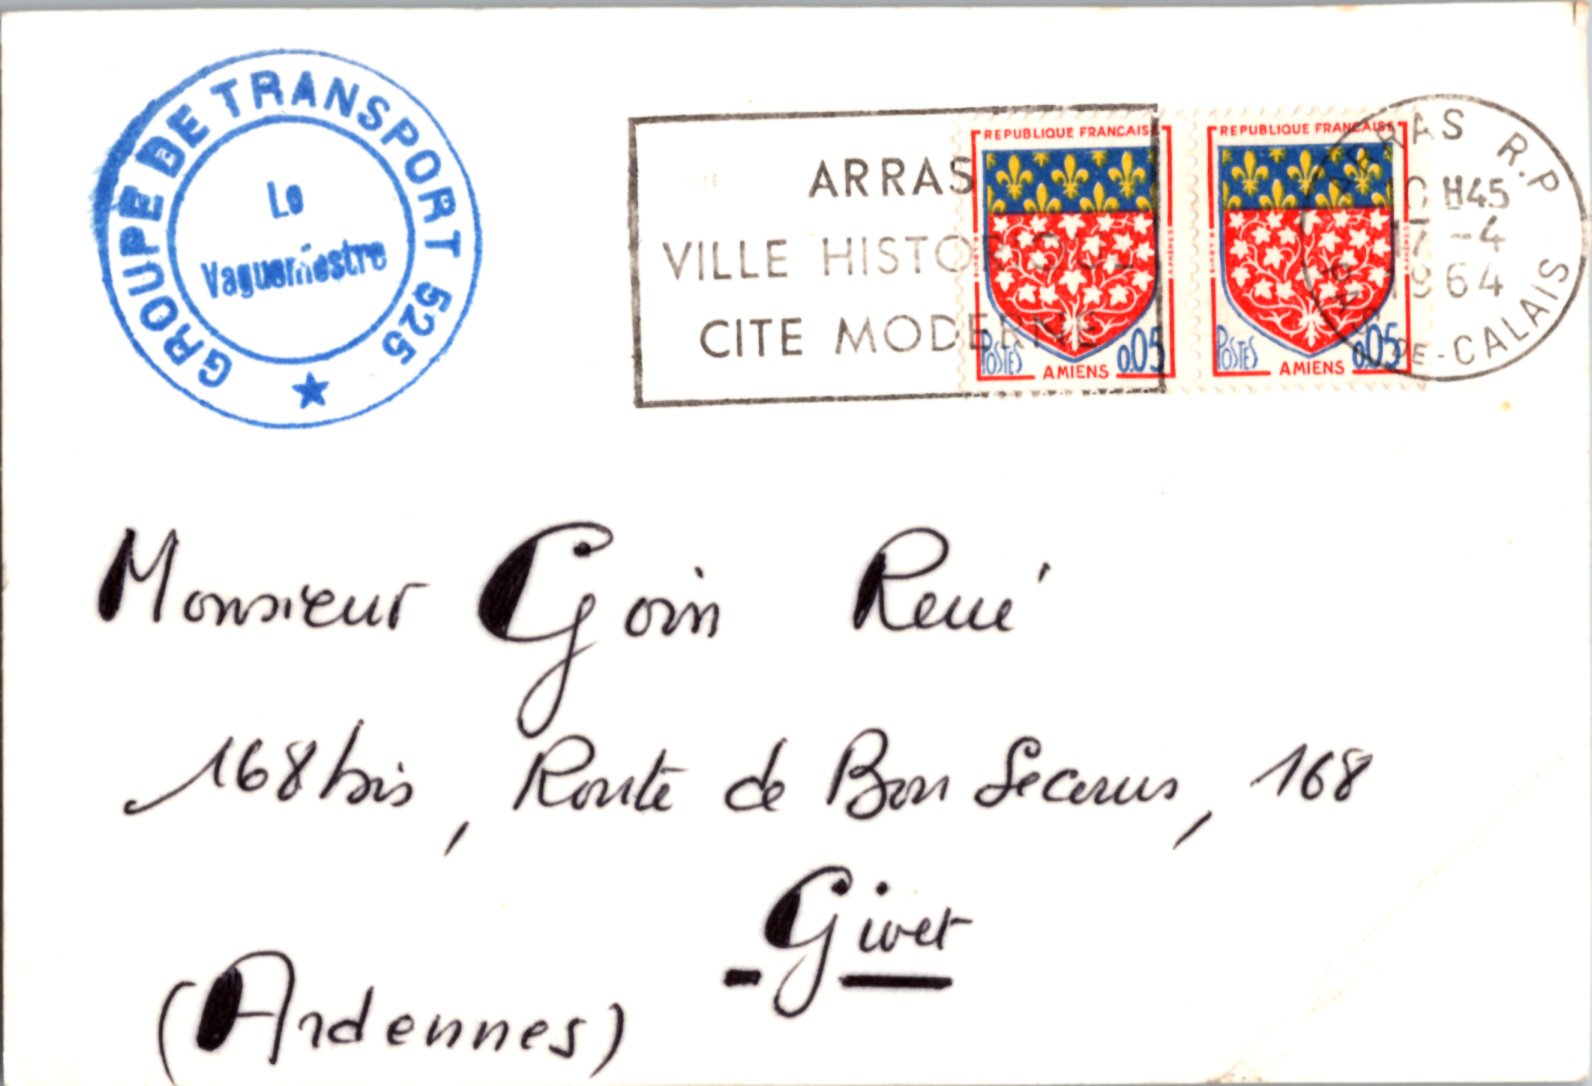 GROUPE DE TRANSPORT 525
Le
Vaguemestre
ARRAS
VILLE HISTORIQUE
CITE MODERNE
REPUBLIQUE FRANCAISE
POSTES 0.05
AMIENS
REPUBLIQUE FRANCAISE
POSTES 0.05
AMIENS
ARRAS R.P
10 H45
17 -4
1964
PAS-DE-CALAIS
Monsieur Goin René
168 bis, Route de Bon Secours, 168
Givet
(Ardennes)